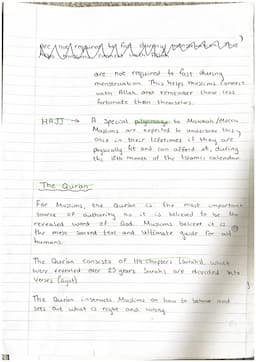 are not required to fast during
menstruation. This helps muslims connect
with Allah and remember those less
fortunate than themselves.
HAJJ → A special pilgrimage to Makkah/Mecca.
Muslims are expected to undertake this
once in their lifetimes if they are
physically fit and can afford it, during
the 12th month of the Islamic calendar
The Quran
For Muslims, the Quran is the most important
source of authority as it is believed to be the
revealed word of God. Muslims believe it is
the most sacred text and ultimate guide for all
humans.
The Quran consists of 114 chapters (Surahs), which
were revealed over 23 years. Surahs are divided into
verses (Ayat)
The Quran instructs Muslims on how to behave and
sets out what is right and wrong.